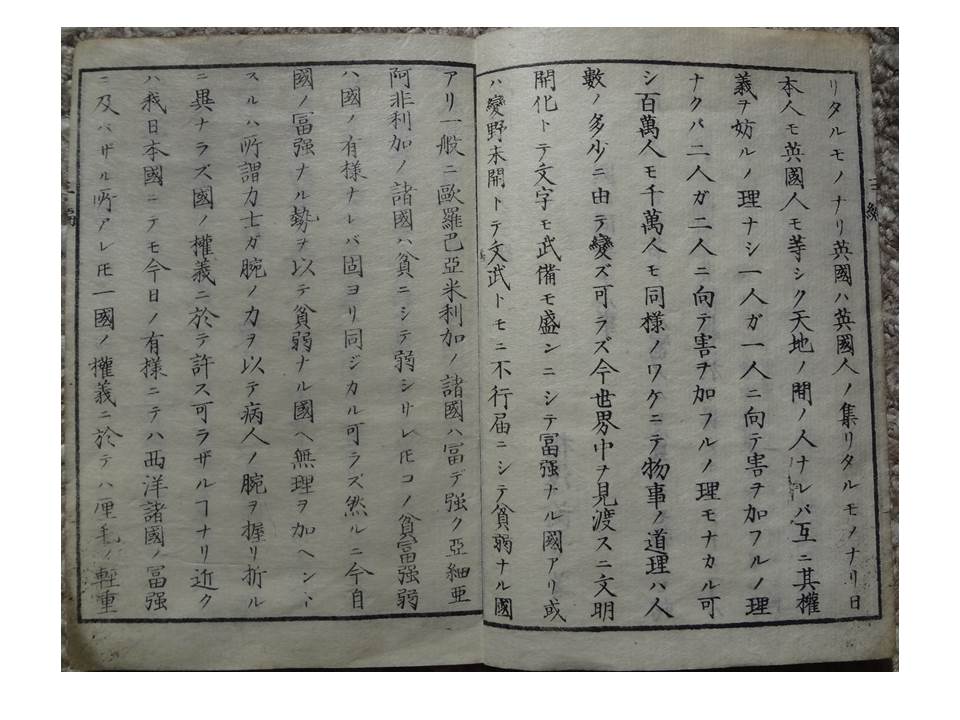 リタルモノナリ英國ハ英國人ノ集リタルモノナリ日
本人モ英國人モ等シク天地ノ間ノ人ナレバ互ニ其權
義ヲ妨ルノ理ナシ一人ガ一人ニ向テ害ヲ加フルノ理
ナクバ二人ガ二人ニ向テ害ヲ加フルノ理モナカル可
シ百萬人モ千萬人モ同様ノワケニテ物事ノ道理ハ人
數ノ多少ニ由テ變ズ可ラズ今世界中ヲ見渡スニ文明
開化トテ文字モ武備モ盛ンニシテ冨強ナル國アリ或
ハ蠻野未開トテ文武トモニ不行届ニシテ貧弱ナル國
アリ一般ニ歐羅巴亞米利加ノ諸國ハ冨デ強ク亞細亜
阿非利加ノ諸國ハ貧ニシテ弱シサレ𪜈コノ貧冨強弱
ハ國ノ有様ナレバ固ヨリ同ジカル可ラズ然ルニ今自
國ノ冨強ナル勢ヲ以テ貧弱ナル國ヘ無理ヲ加ヘントスルハ所謂力士ガ腕ノ力ヲ以テ病人ノ腕ヲ握リ折ル
ニ異ナラズ國ノ權義ニ於テ許ス可ラザルヿナリ近ク
ハ我日本國ニテモ今日ノ有様ニテハ西洋諸國ノ冨強
ニ及バザル所アレ𪜈一國ノ權義ニ於テハ厘毛ノ軽重